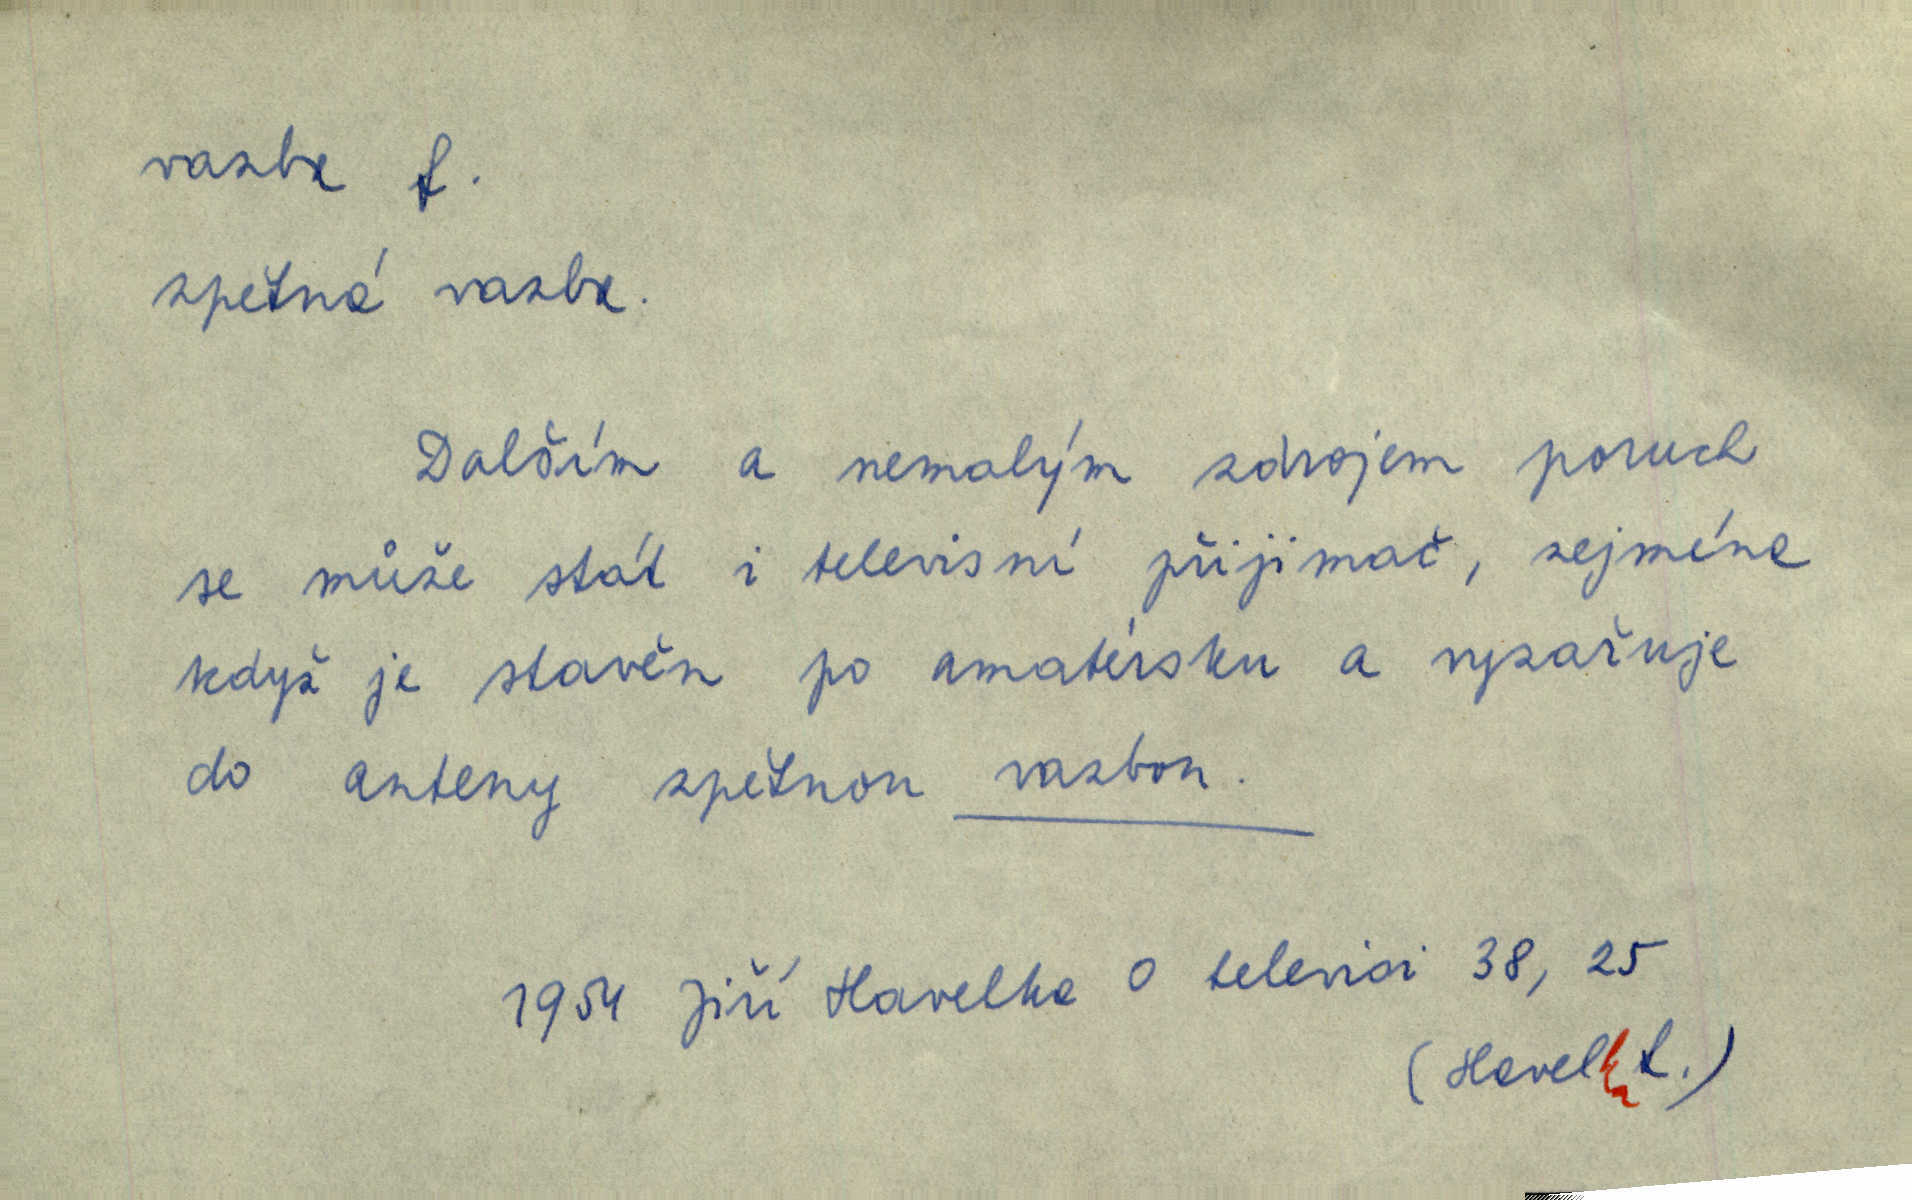 vazba f.
zpětná vazba.
Dalším a nemalým zdrojem poruch
se může stát i televisní přijimač, zejména
když je stavěn po amatérsku a vyzařuje
do anteny zpětnou vazbou.
1954 Jiří Havelka O televisi 38, 25
(Havelka t.)